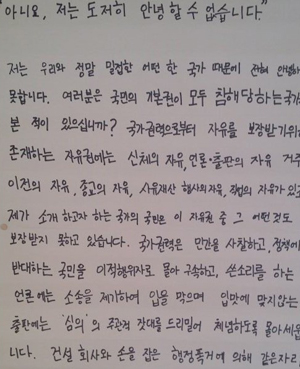 "아니요, 저는 도저히 안녕할 수 없습니다."
저는 우리와 정말 밀접한 어떤 한 국가 때문에 전혀 안녕하
못합니다. 여러분은 국민의 기본권이 모두 침해당하는 국가
본 적이 있으십니까? 국가권력으로부터 자유를 보장받기위
존재하는 자유권에는 신체의 자유, 언론·출판의 자유 거주
이전의 자유, 종교의 자유, 사유재산 행사의자유, 직업의 자유가 있고
제가 소개 하고자 하는 국가의 국민은 이 자유권 중 그 어떤 것도
보장받지 못하고 있습니다. 국가권력은 민간을 사찰하고, 정책에
반대하는 국민을 이적행위자로 몰아 구속하고, 쓴소리를 하는
언론에는 소송을 제기하여 입을 막으며 입맛에 맞지않는
출판에는 '심의'의 주관적 잣대를 드리밀어 체념하도록 몰아세웁
니다. 건설 회사와 손을 잡은 행정폭거에 의해 같은자리